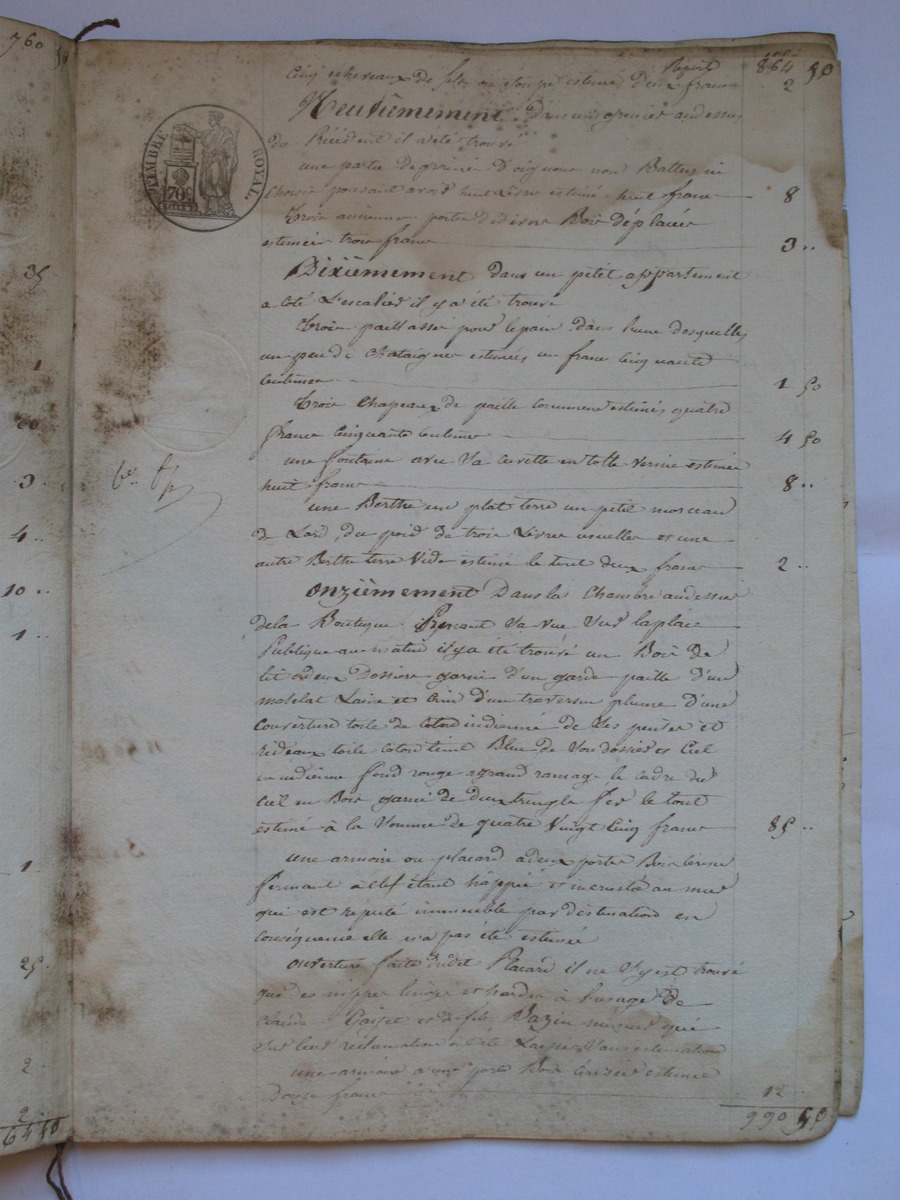 760 50
Report 864 50
Cinq echeveaux de fil ou étoupe estimé deux francs 2
Neuvièmement Dans un grenier audessus
du Précédent il a été trouvé
une partie de graine d'oignons non Battus ni
choisie pouvant avoir huit Livres estimé huit francs 8
Trois anciennes portes de divers Bois déplacées
estimées trois francs 3 ..
Dixièmement dans un petit appartement
a coté L'escalier il y a été trouvé
Trois paillasses pour le pain dans l'une desquelles
un peu de chataignes estimées un franc cinquante
Centimes 1 50
Trois chapeaux de paille commune estimés quatre
francs cinquante centimes 4 50
une fontaine avec sa cuvette en tolle vernie estimée
huit francs 8 ..
une Berthe un plat terre un petit morceau
de Lard du poid de trois Livres usuelles et une
autre Berthe terre vide estimé le tout deux francs 2 ..
Onzièmement Dans la Chambre audessus
de la Boutique Prenant sa vue sur la place
Publique au matin il y a été trouvé un Bois de
lit a deux Dossiers garni d'un garde paille d'un
matelat Laine et Crin d'un traversin plume d'une
Couverture toile de coton indienne de ses pentes et
rideaux toile coton teint Bleu de son dossier et Ciel
en indienne fond rouge a grand ramage le cadre du
Ciel en Bois garni de deux tringles fer le tout
estimé à la somme de quatre Vingt Cinq francs 85 ..
une armoire ou placard a deux portes Bois cerisier
fermant à clef étant happée et incrustée au mur
qui est reputé immeuble par déstination en
Conséquence elle n'a pas été estimée
Ouverture faite dudit Placard il ne s'y est trouvé
que des nippes linges et hardes à l'usage de
Claude et de fils Bazin mineur qui
sur leur réclamation a été Laissé sans estimation
une armoire a une porte Bois cerisier estimée
Douze francs 12
990 50
TIMBRE ROYAL
70c
35
1
3 ..
4 ..
10 ..
1 ..
1
25
2